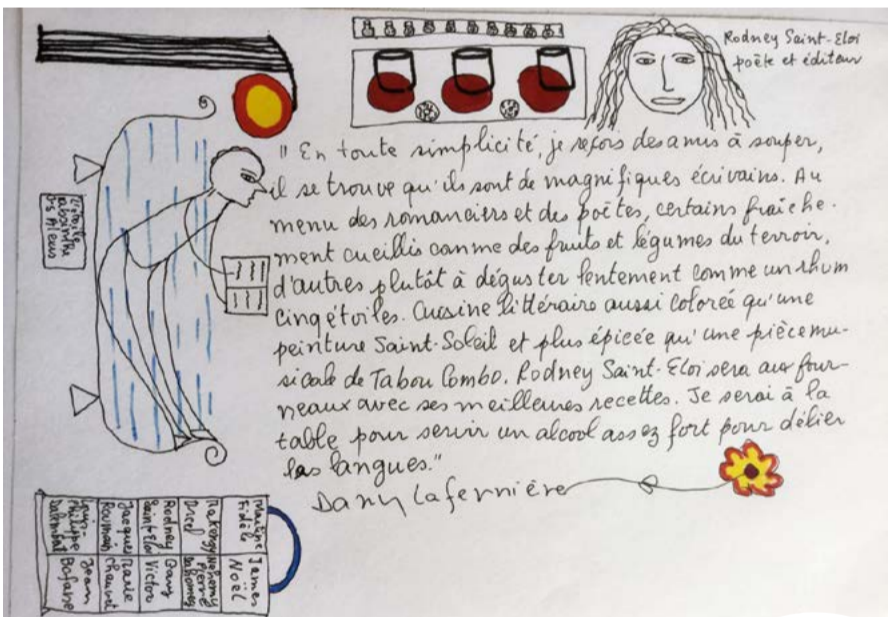 Rodney Saint-Eloi
poète et éditeur
"En toute simplicité, je reçois des amis à souper,
il se trouve qu'ils sont de magnifiques écrivains. Au
menu des romanciers et des poètes, certains fraîche-
ment cueillis comme des fruits et légumes du terroir,
d'autres plutôt à déguster lentement comme un rhum
cinq étoiles. Cuisine littéraire aussi colorée qu'une
peinture Saint-Soleil et plus épicée qu'une pièce mu-
sicale de Tabou Combo. Rodney Saint-Eloi sera aux four-
neaux avec ses meilleures recettes. Je serai à la
table pour servir un alcool assez fort pour délier
les langues."
Dany Laferrière
absinthe
Alexis
Maritne
Fidèle
James
Noël
Makenzy
Orcel
Nahomy
Pierre
Dahomey
Rodney
Saint-Eloi
Gary
Victor
Jacques
Roumain
Marie
Chauvet
Louis-
Philippe
Dalembert
Jean
Bofane